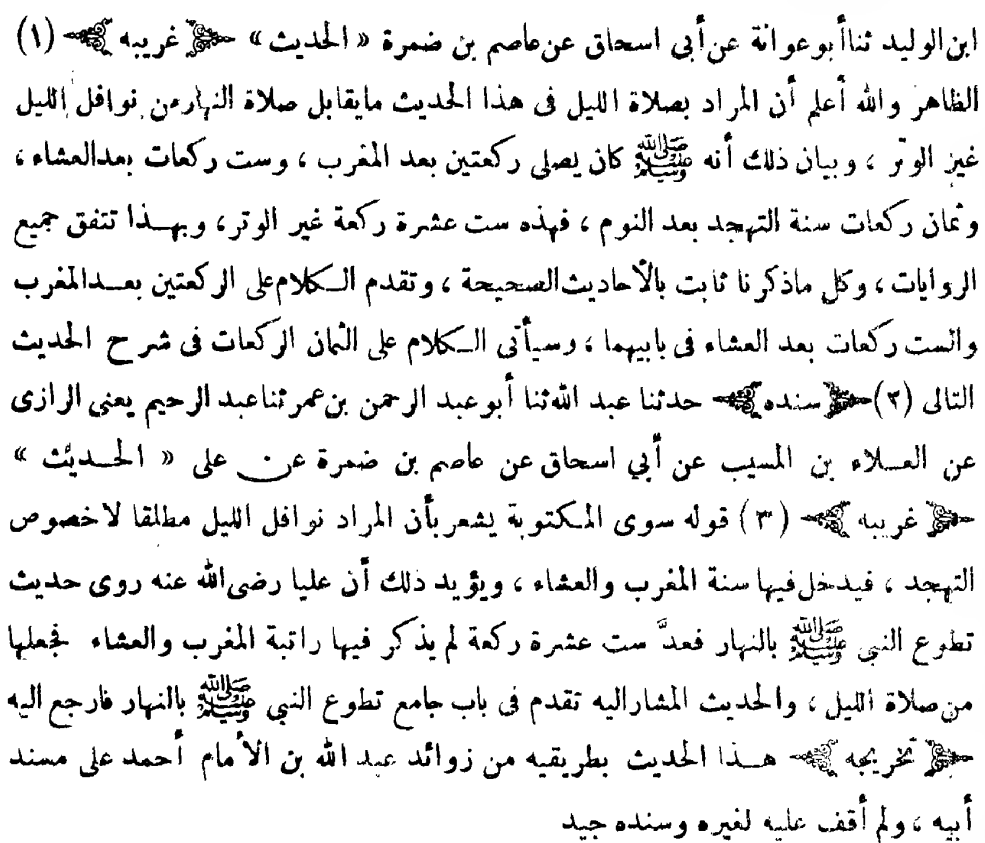 ابن الوليد ثنا أبو عوانة عن أبى اسحاق عن عاصم بن ضمرة « الحديث » ﴿ غريبه ﴾ (١)
الظاهر والله أعلم أن المراد بصلاة الليل فى هذا الحديث مايقابل صلاة النهار من نوافل الليل
غير الوتر ، وبيان ذلك أنه ﷺ كان يصلى ركعتين بعد المغرب ، وست ركعات بعد العشاء ،
وثمان ركعات سنة التهجد بعد النوم ، فهذه ست عشرة ركعة غير الوتر، وبهـذا تتفق جميع
الروايات ، وكل ماذكرنا ثابت بالأحاديث الصحيحة ، وتقدم الـكلام على الركعتين بعـد المغرب
والست ركعات بعد العشاء فى بابيهما ، وسيأتى الـكلام على الثمان الركعات فى شرح الحديث
التالى (٢) ﴿ سنده ﴾ حدثنا عبد الله ثنا أبو عبد الرحمن بن عمر ثنا عبد الرحيم يعنى الرازى
عن العـلاء بن المسيب عن أبي اسحاق عن عاصم بن ضمرة عن على « الحـديث »
﴿ غريبه ﴾ (٣) قوله سوى المـكتوبة يشعر بأن المراد نوافل الليل مطلقا لا خصوص
التهجد ، فيدخل فيها سنة المغرب والعشاء ، ويؤيد ذلك أن عليا رضى الله عنه روى حديث
تطوع النبى ﷺ بالنهار فعدَّ ست عشرة ركعة لم يذكر فيها راتبة المغرب والعشاء فجعلها
من صلاة الليل ، والحديث المشار اليه تقدم فى باب جامع تطوع النبي ﷺ بالنهار فارجع اليه
﴿ تخريجه ﴾ هـذا الحديث بطريقيه من زوائد عبد الله بن الأمام أحمد على مسند
أبيه ، ولم أقف عليه لغيره وسنده جيد